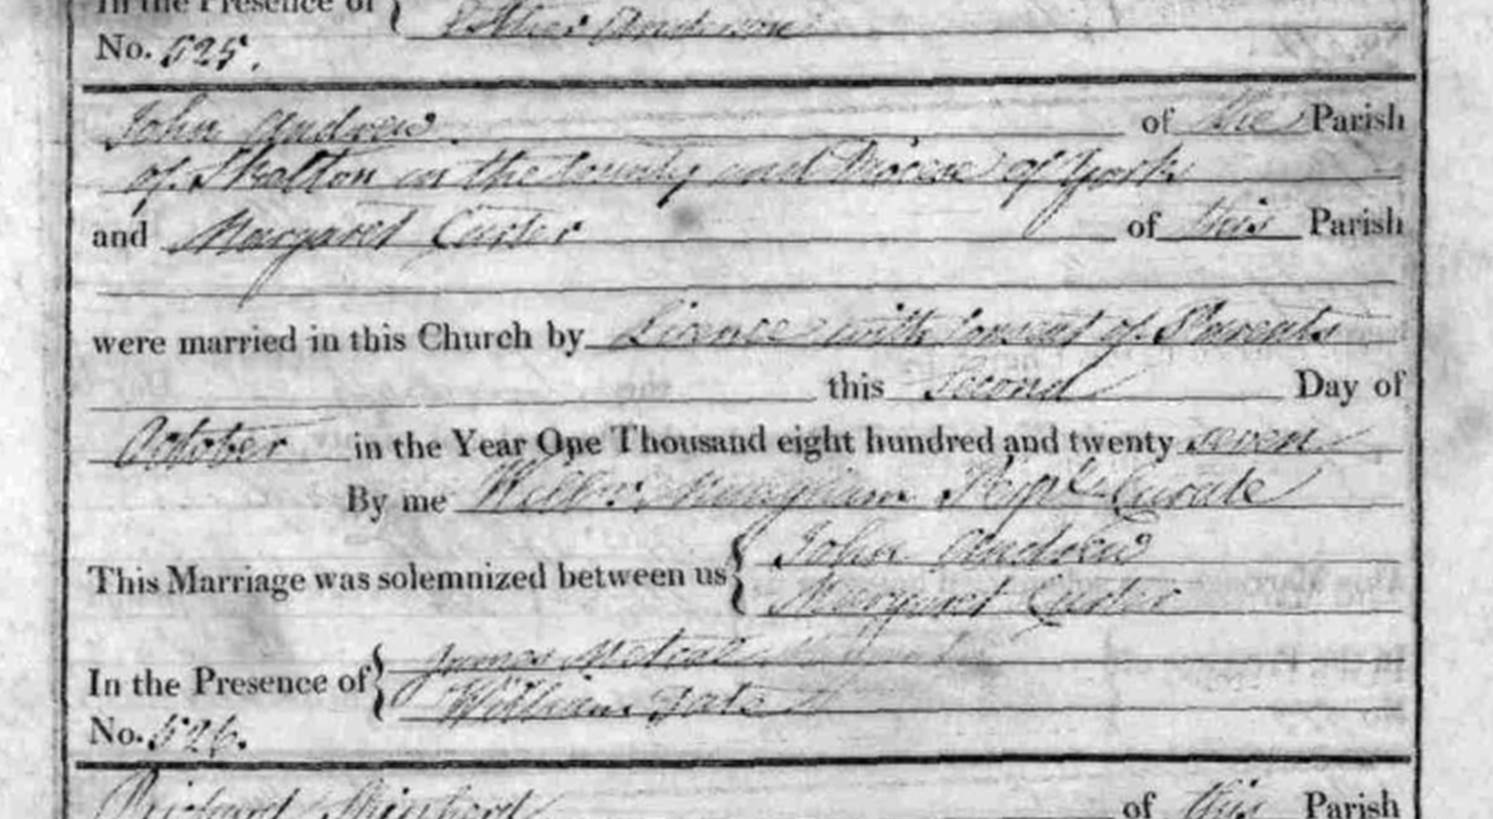 In the Presence of { Esther Anderson
No. 525.
John Andrew of the Parish
of Skelton in the County and Diocese of York
and Margaret Carter of this Parish
were married in this Church by Licence with Consent of Parents
this Second Day of
October in the Year One Thousand eight hundred and twenty seven
By me Curate
This Marriage was solemnized between us { John Andrew
Margaret Carter
In the Presence of { James Metcalfe
William Tate
No. 526.
Richard of this Parish